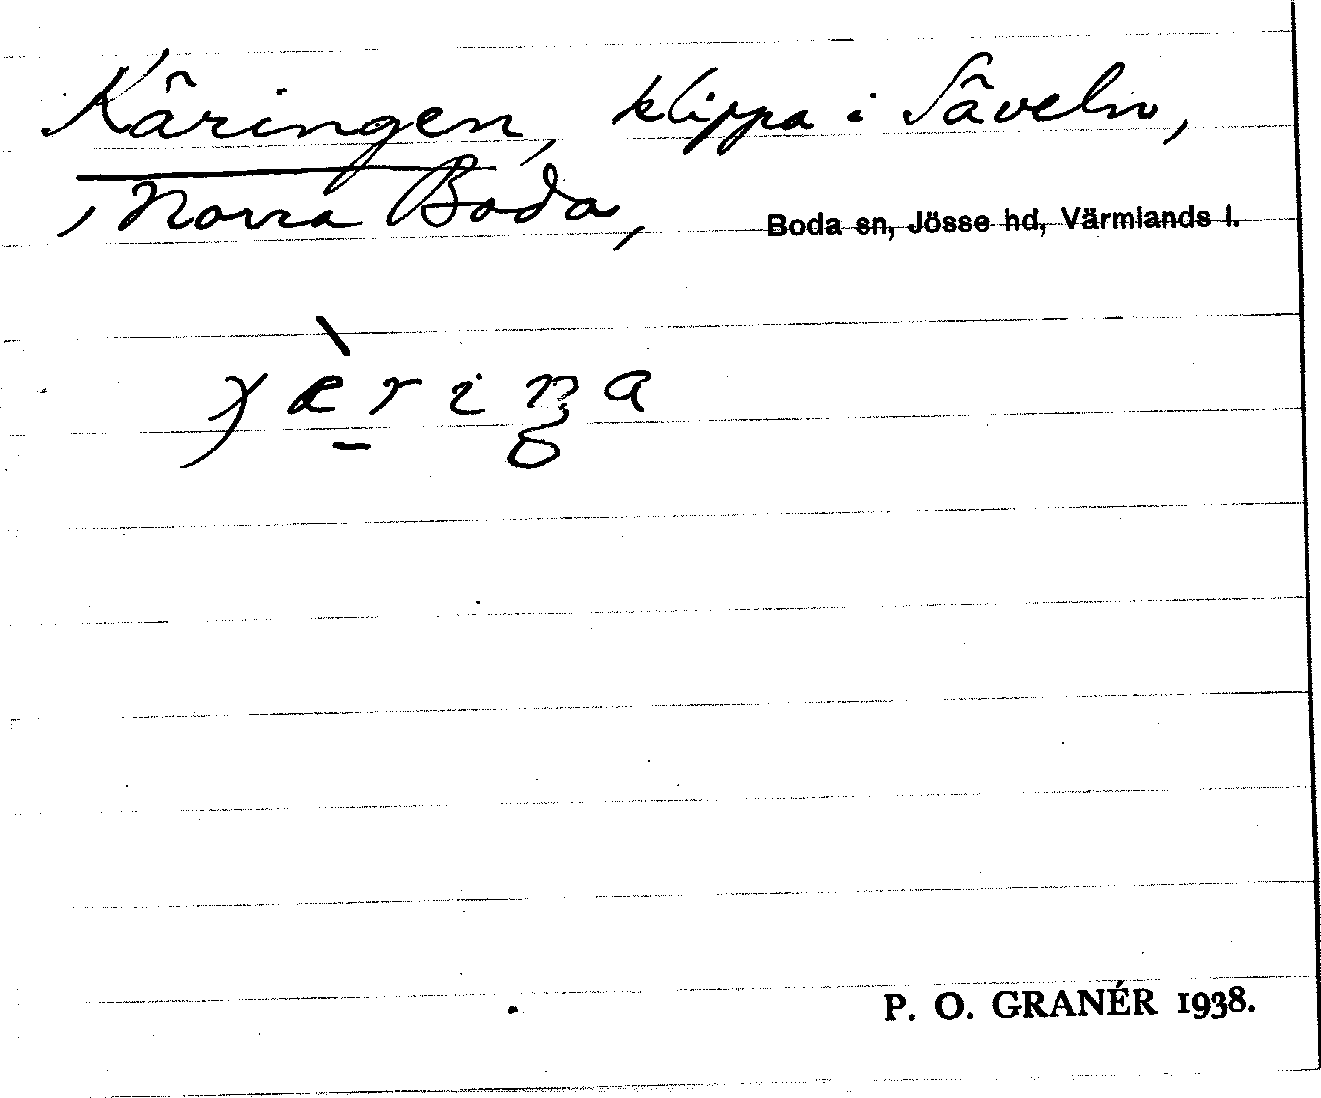 Käringen, klippa i Sävelns,
i Norra Boda, Boda sn, Jösse hd, Värmlands l.
P. O. GRANÉR 1938.